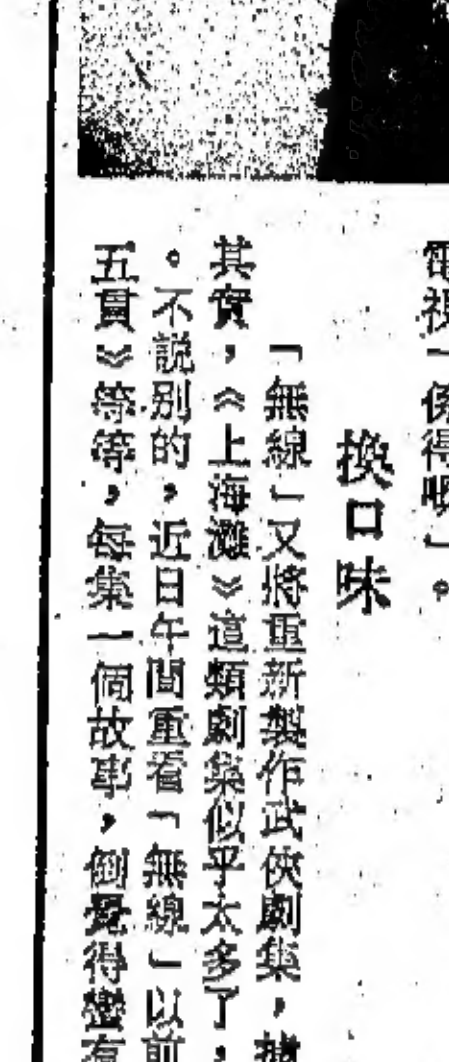 電視「係得嘅」。
換口味
「無線」又將重新製作武俠劇集，據
其實，《上海灘》這類劇集似乎太多了，
。不説別的，近日午間重看「無線」以前
五貫》等等，每集一個故事，倒覺得蠻有